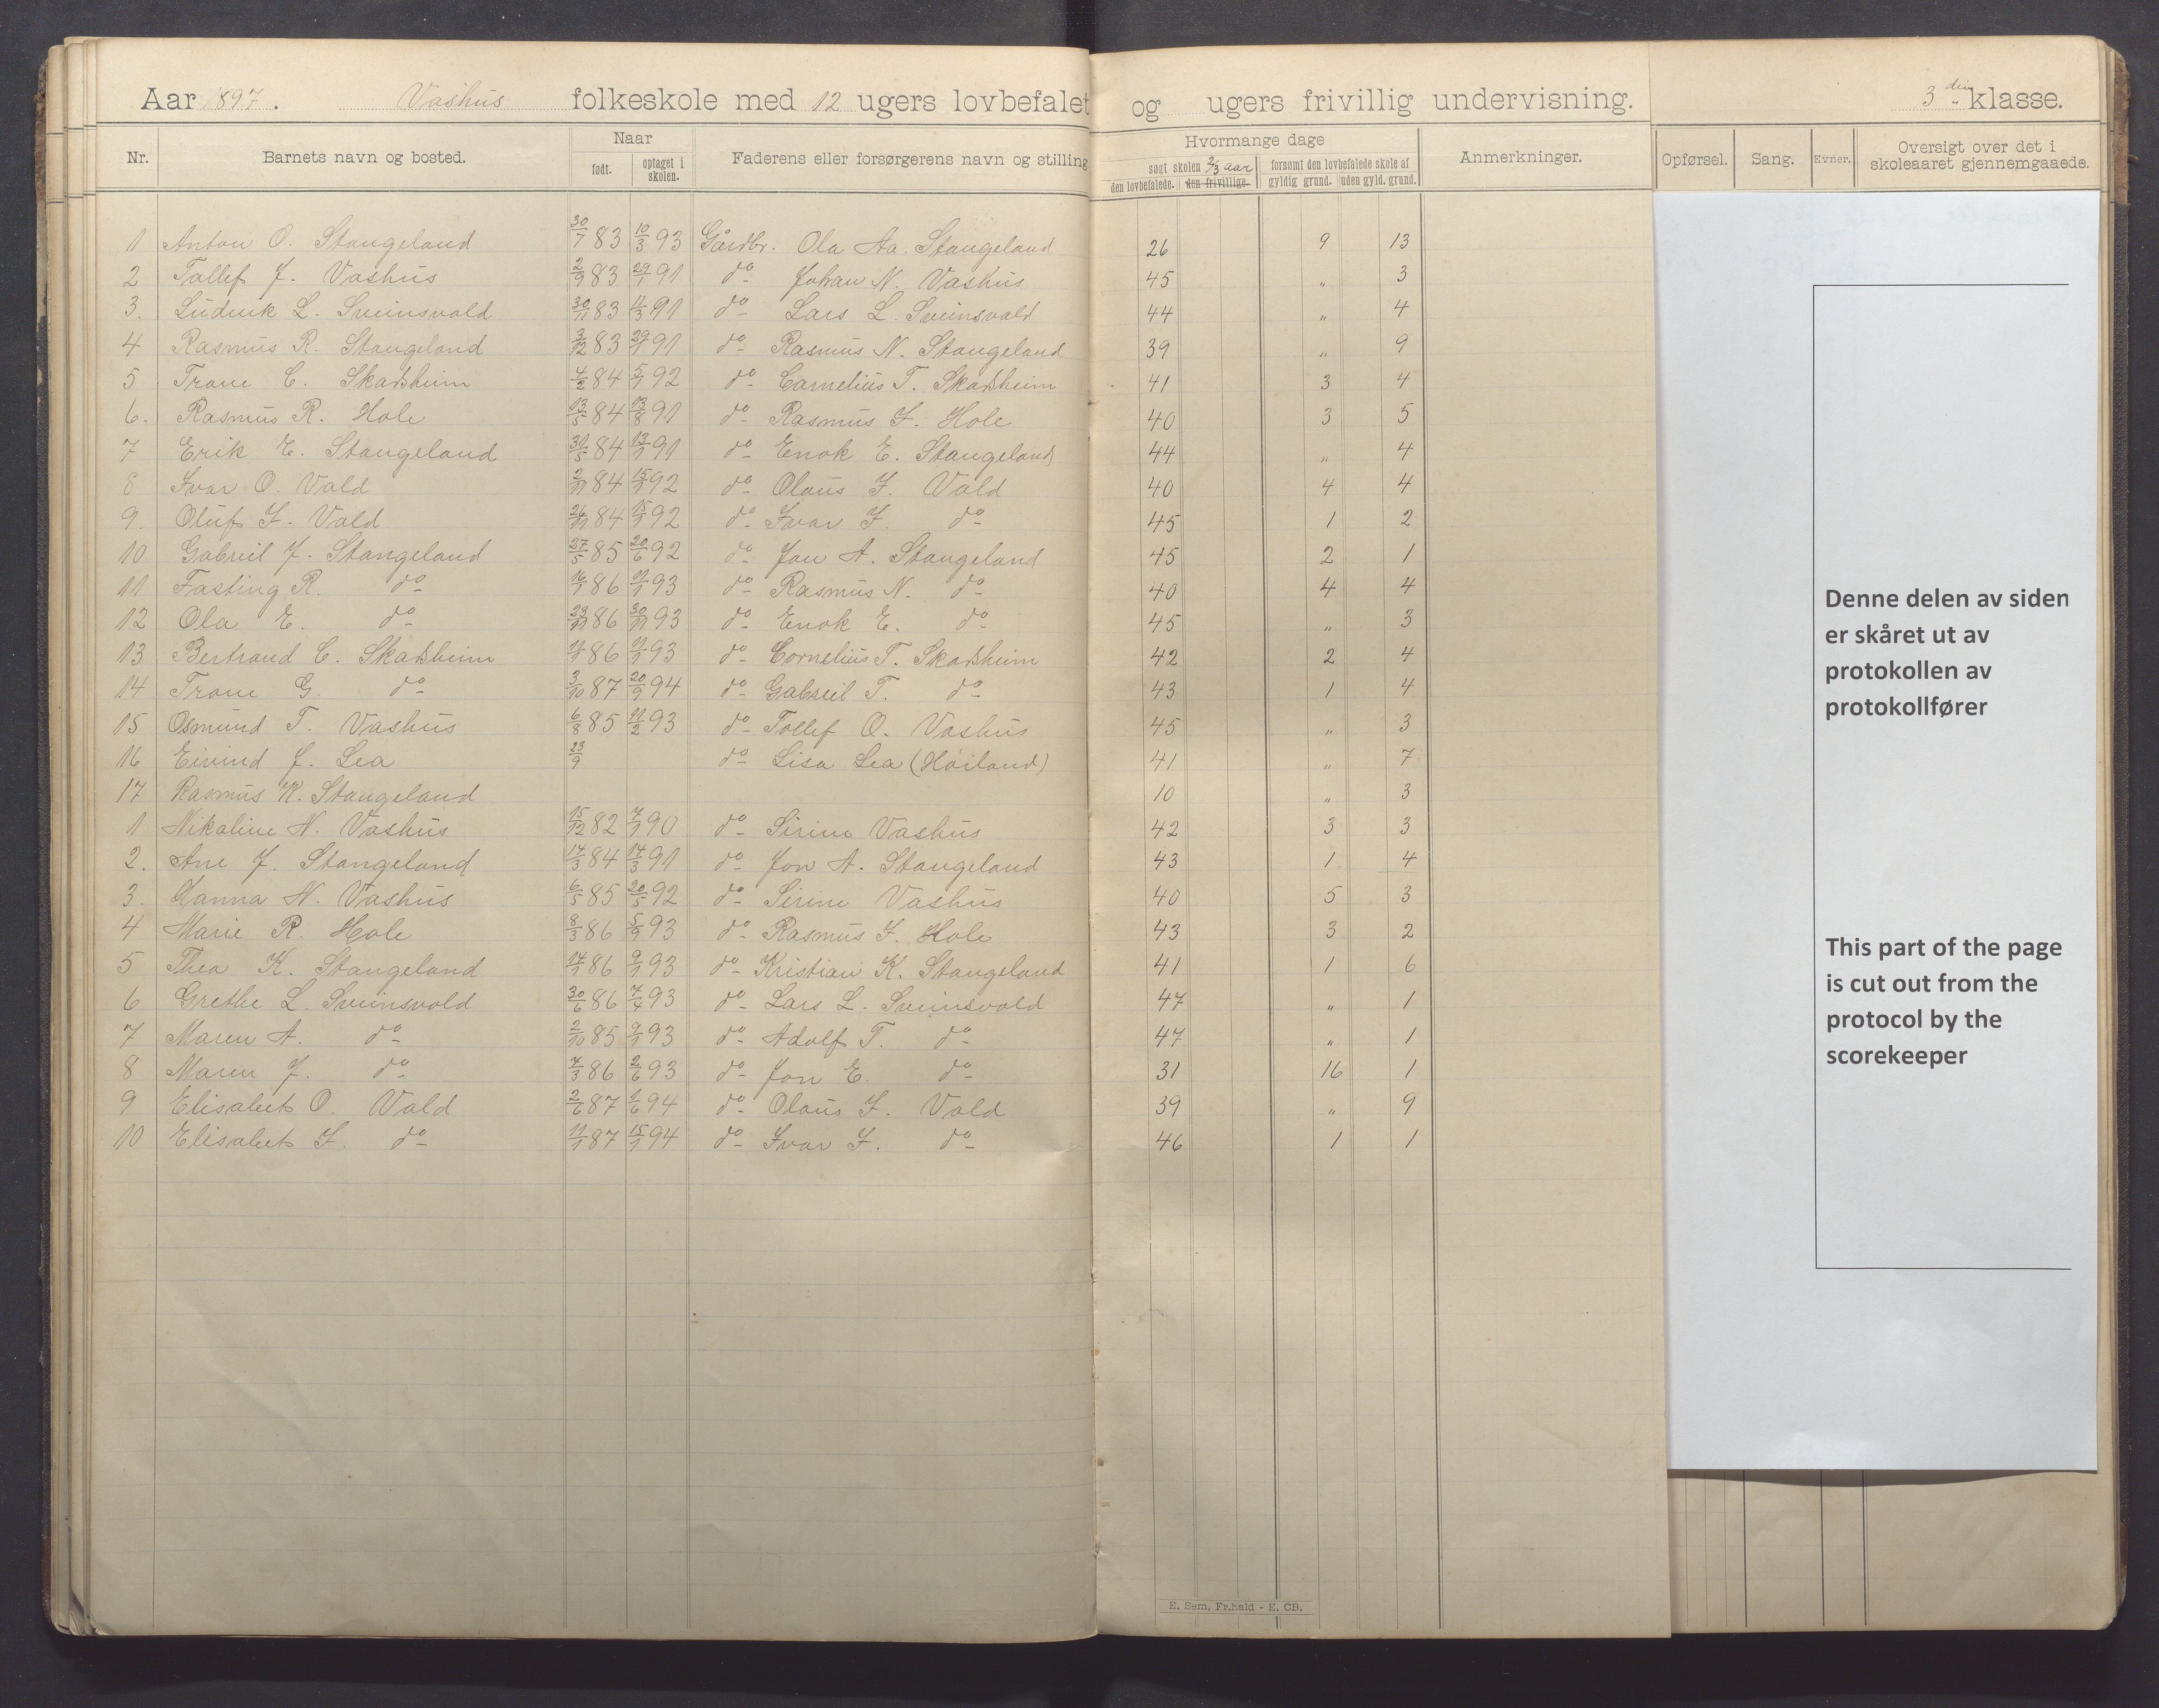 Aar 1897. Vashus folkeskole med 12 ugers lovbefalet og ugers frivillig undervisning. 3 die klasse.
Nr. Barnets navn og bosted. Naar født. optaget i skolen. Faderens eller forsørgerens navn og stilling Hvormange dage søgt skolen 2/3 aar den lovbefalede. den frivillige. forsømt den lovbefalede skole af gyldig grund. uden gyld. grund. Anmerkninger. Opførsel. Sang. Evner. Oversigt over det i skoleaaret gjennemgaaede.
1 Anton O. Stangeland 30/7 83 10/3 93 Gårdbr. Ola Aa. Stangeland 26 9 13
2 Tallef J. Vashus 2/9 83 29/1 91 do Johan N. Vashus 45 " 3
3. Ludvik L. Sveinsvold 30/11 83 11/3 91 do Lars L. Sveinsvold 44 " 4
4 Rasmus R. Stangeland 3/12 83 29/1 91 do Rasmus N. Stangeland 39 " 9
5 Trone C. Skadsheim 4/2 84 5/1 92 do Cornelius T. Skadsheim 41 3 4
6. Rasmus R. Hole 13/5 84 13/8 91 do Rasmus I. Hole 40 3 5
7 Erik E. Stangeland 31/5 84 13/1 91 do Enok E. Stangeland 44 " 4
8 Ivar O. Vold 2/11 84 15/1 92 do Olaus I. Vold 40 4 4
9. Oluf I. Vold 26/11 84 15/1 92 do Ivar I. do 45 1 2
10 Gabriel J. Stangeland 27/5 85 20/6 92 do Jon A. Stangeland 45 2 1
11 Fasting R. do 16/1 86 11/1 93 do Rasmus N. do 40 4 4
12 Ola E. do 23/11 86 30/11 93 do Enok E. do 45 " 3
13 Bertrand C. Skadsheim 11/1 86 11/1 93 do Cornelius T. Skadsheim 42 2 4
14 Trone G. do 3/10 87 20/9 94 do Gabriel T. do 43 1 4
15 Osmund T. Vashus 6/8 85 11/2 93 do Tollef O. Vashus 45 " 3
16 Eivind J. Lea 23/9 do Lisa Lea (Høiland) 41 " 7
17 Rasmus K. Stangeland 10 " 3
1 Nikoline N. Vashus 15/12 82 7/1 90 do Sirine Vashus 42 3 3
2. Ane J. Stangeland 14/3 84 14/3 91 do Jon A. Stangeland 43 1 4
3. Hanna N. Vashus 6/5 85 20/5 92 do Sirine Vashus 40 5 3
4 Marie R. Hole 8/3 86 5/9 93 do Rasmus I. Hole 43 3 2
5 Thea K. Stangeland 14/1 86 9/1 93 do Kristian K. Stangeland 41 1 6
6 Grethe L. Sveinsvold 30/6 86 7/4 93 do Lars L. Sveinsvold 47 " 1
7 Maren A. do 2/10 85 9/1 93 do Adolf T. do 47 " 1
8 Maren J. do 7/3 86 2/6 93 do Jon E. do 31 16 1
9 Elisabet O. Vold 2/6 87 1/6 94 do Olaus I. Vold 39 " 9
10 Elisabet I. do 11/1 87 15/1 94 do Ivar I. do 46 1 1
Denne delen av siden
er skåret ut av
protokollen av
protokollfører
This part of the page
is cut out from the
protocol by the
scorekeeper
E. Sem, Fr.hald - E. CB.